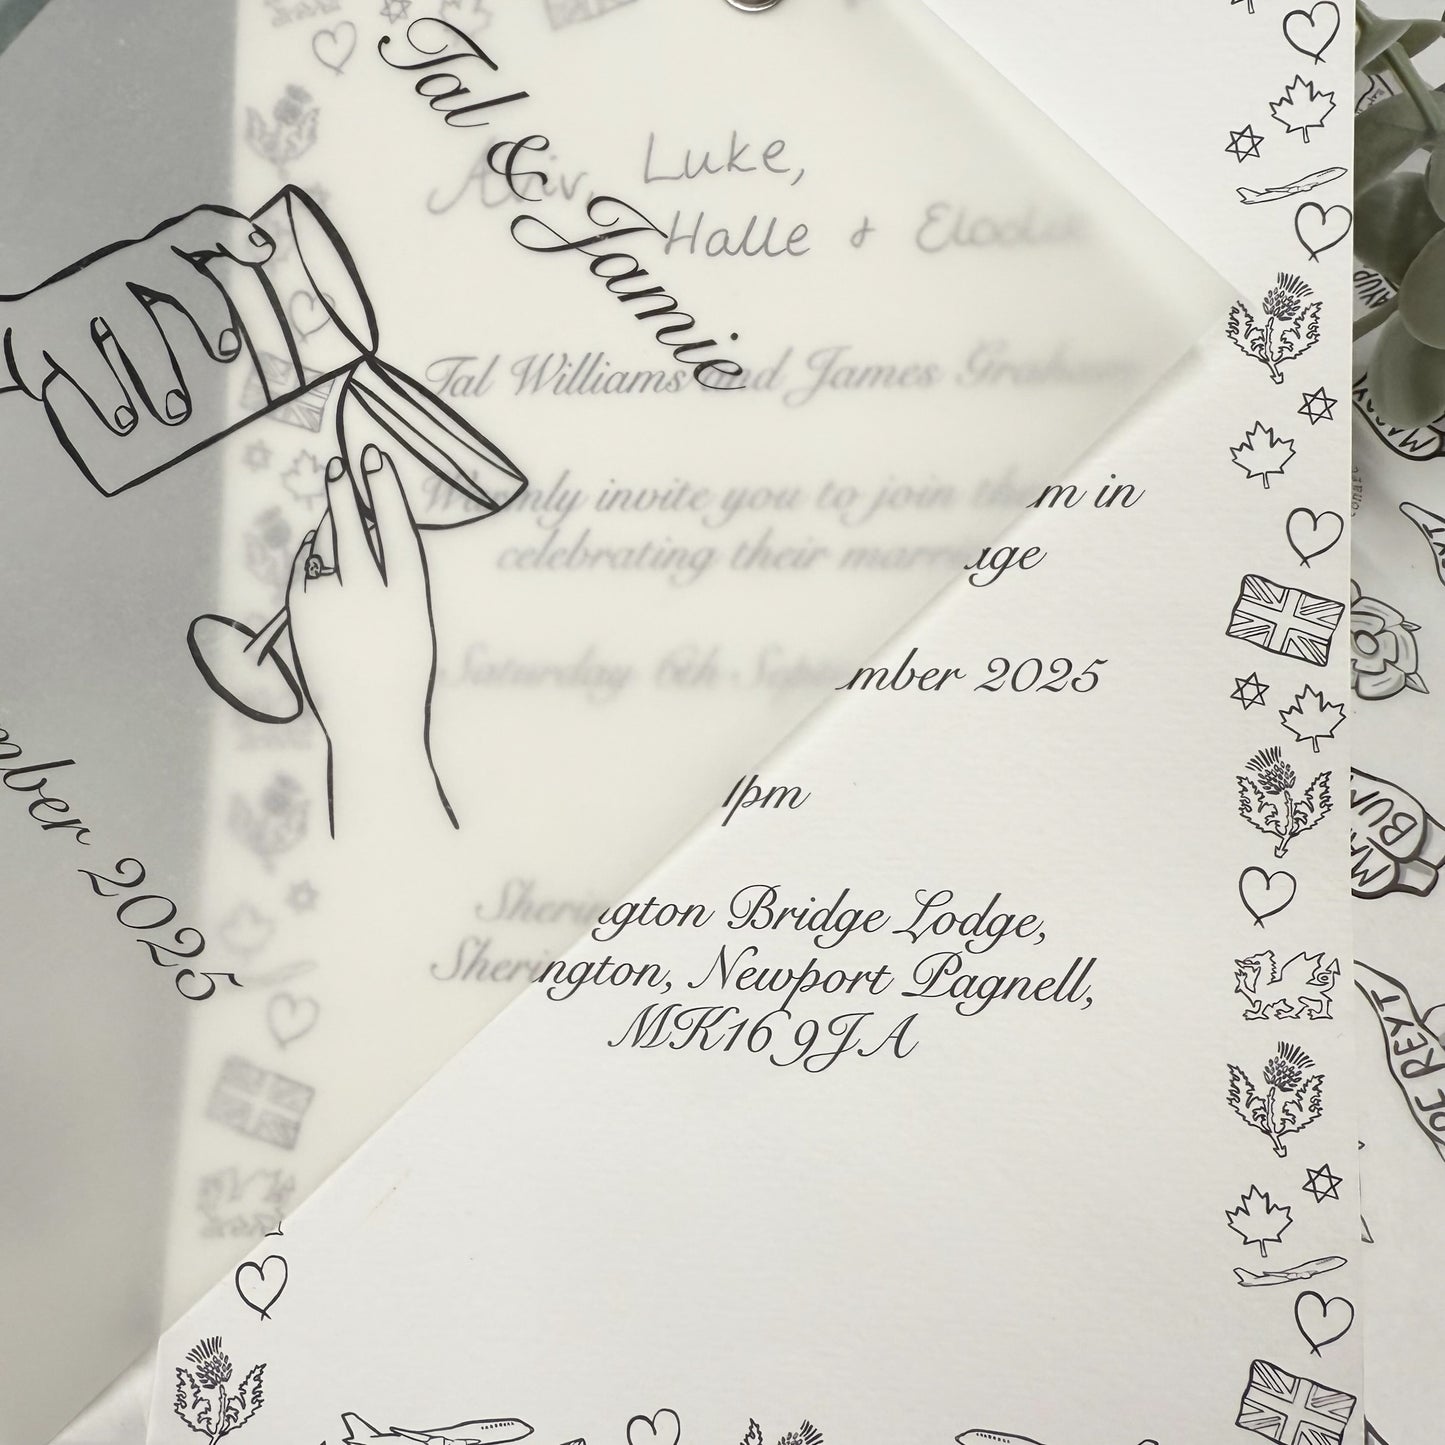 Tal & Jamie
Aviv, Luke,
Halle + Elodie
Tal Williams and James Graham
Warmly invite you to join them in
celebrating their marriage
Saturday 6th September 2025
1pm
Sherington Bridge Lodge,
Sherington, Newport Pagnell,
MK16 9JA
mber 2025
BUN
REYT